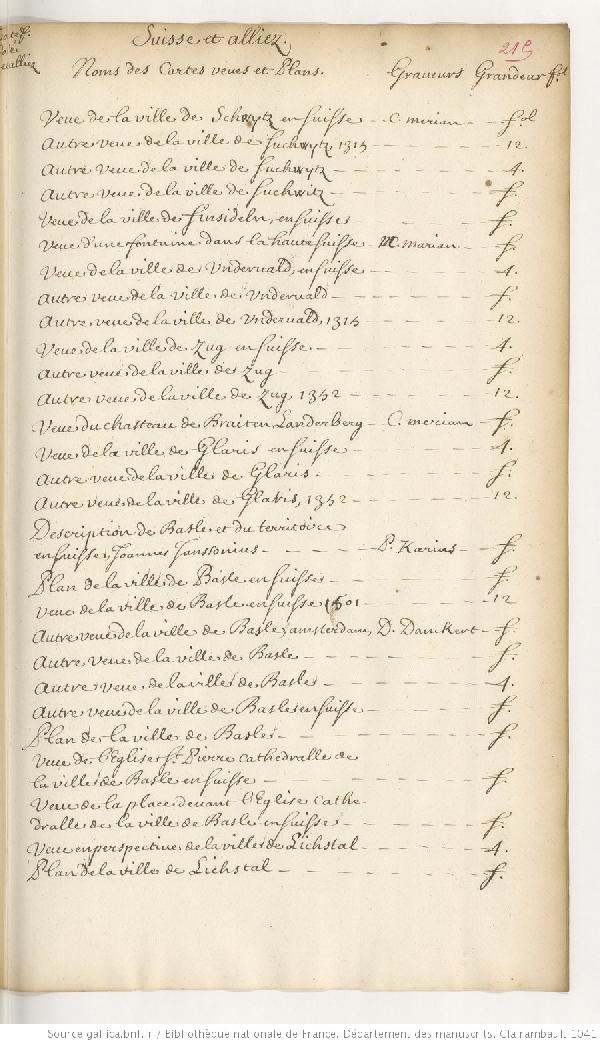 Suisse et alliez.
219
Noms des Cartes veues et Plans. Graveurs Grandeur fol
Veue de la ville de Schwytz en suisse - C. merian - fol
Autre veue de la ville de suchwytz, 1315 - 12.
Autre veue de la ville de suchwytz - 4.
Autre veue de la ville de suchwitz - f.
Veue de la ville de Einsideln, en suisse - f.
Veue d'une fontaine dans la haute suisse - M. marian - f.
Veue de la ville de Undervald, en suisse - 4.
Autre veue de la ville de Undervald - f.
Autre veue de la ville de Undervald, 1315 - 12.
Veue de la ville de Zug en suisse - 4.
Autre veue de la ville de Zug - f.
Autre veue de la ville de Zug, 1352 - 12.
Veue du chasteau de Braiten Landerberg - C. merian - f.
Veue de la ville de Glaris en suisse - 4.
Autre veue de la ville de Glaris - f.
Autre veue de la ville de Glaris, 1352 - 12.
Description de Basle et du territoire
en suisse, Joannes Janssonius - P. Kærius - f.
Plan de la ville de Basle en suisse - f.
Veue de la ville de Basle en suisse 1501 - 12
Autre veue de la ville de Basle, amsterdam, D. Danckert - f.
Autre veue de la ville de Basle - f.
Autre veue de la ville de Basle - 4.
Autre veue de la ville de Basle en suisse - f.
Plan de la ville de Basle - f.
Veue de l'Eglise st. Pierre Cathedralle de
la ville de Basle en suisse - f.
Veue de la place devant l'Eglise Cathe-
dralle de la ville de Basle en suisse - f.
Veue en perspective de la ville de Lichstal - 4.
Plan de la ville de Lichstal - f.
Source gallica.bnf.fr / Bibliothèque nationale de France. Département des manuscrits. Clairambault 1041